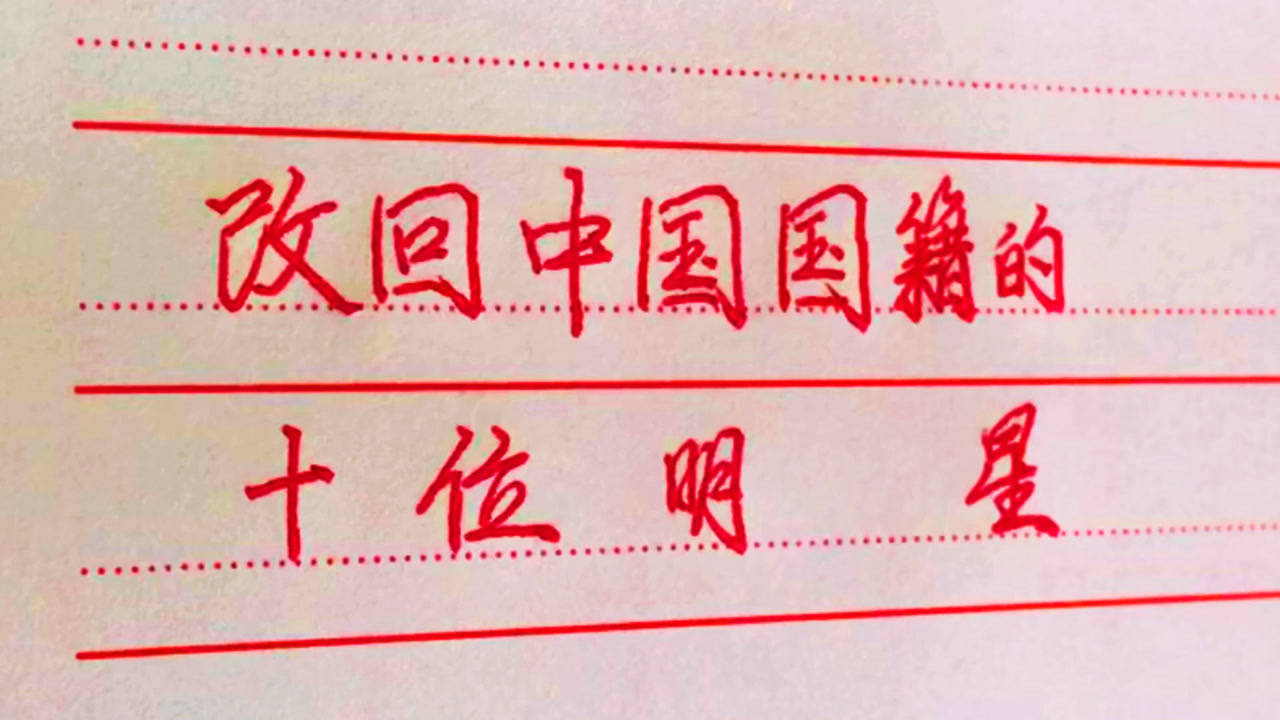 改回中国国籍的
十位明星